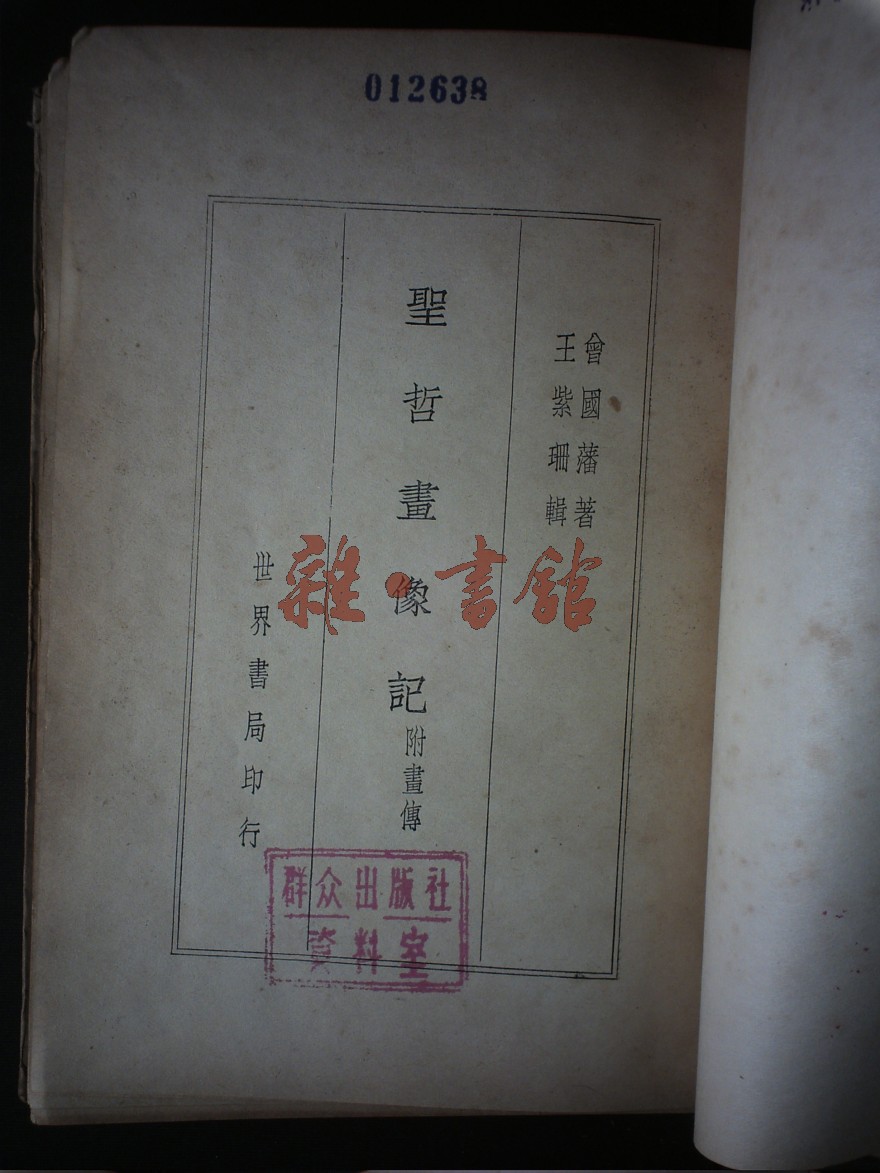 012638
曾國藩著
王紫珊輯
聖哲畫像記附畫傳
世界書局印行
雜·書舘
群众出版社
资料室